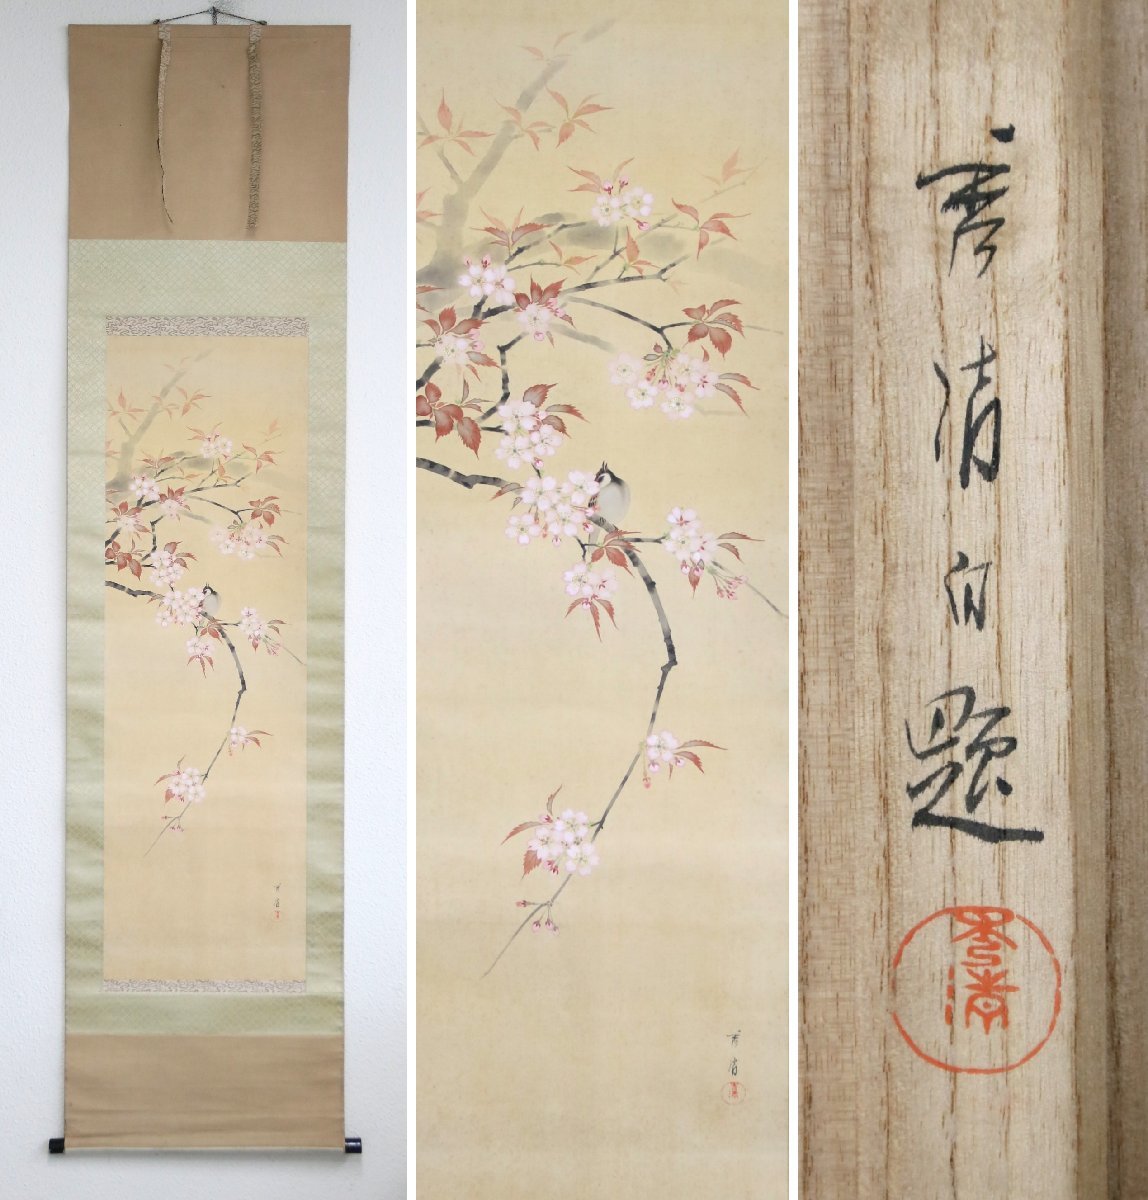 秀清
秀清自題
秀清